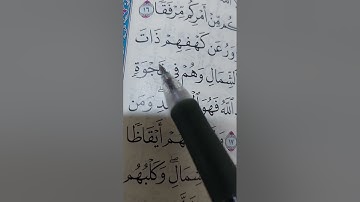 كُم مِّنْ أَمْرِكُم مِّرْفَقًا ١٦
وَرُ عَن كَهْفِهِمْ ذَاتَ
ٱلشِّمَالِ وَهُمْ فِى فَجْوَةٍ
ٱللَّهُ فَهُوَ وَمَن
١٧ هُمْ أَيْقَاظًا
ٱلشِّمَالِ ۖ وَكَلْبُهُم